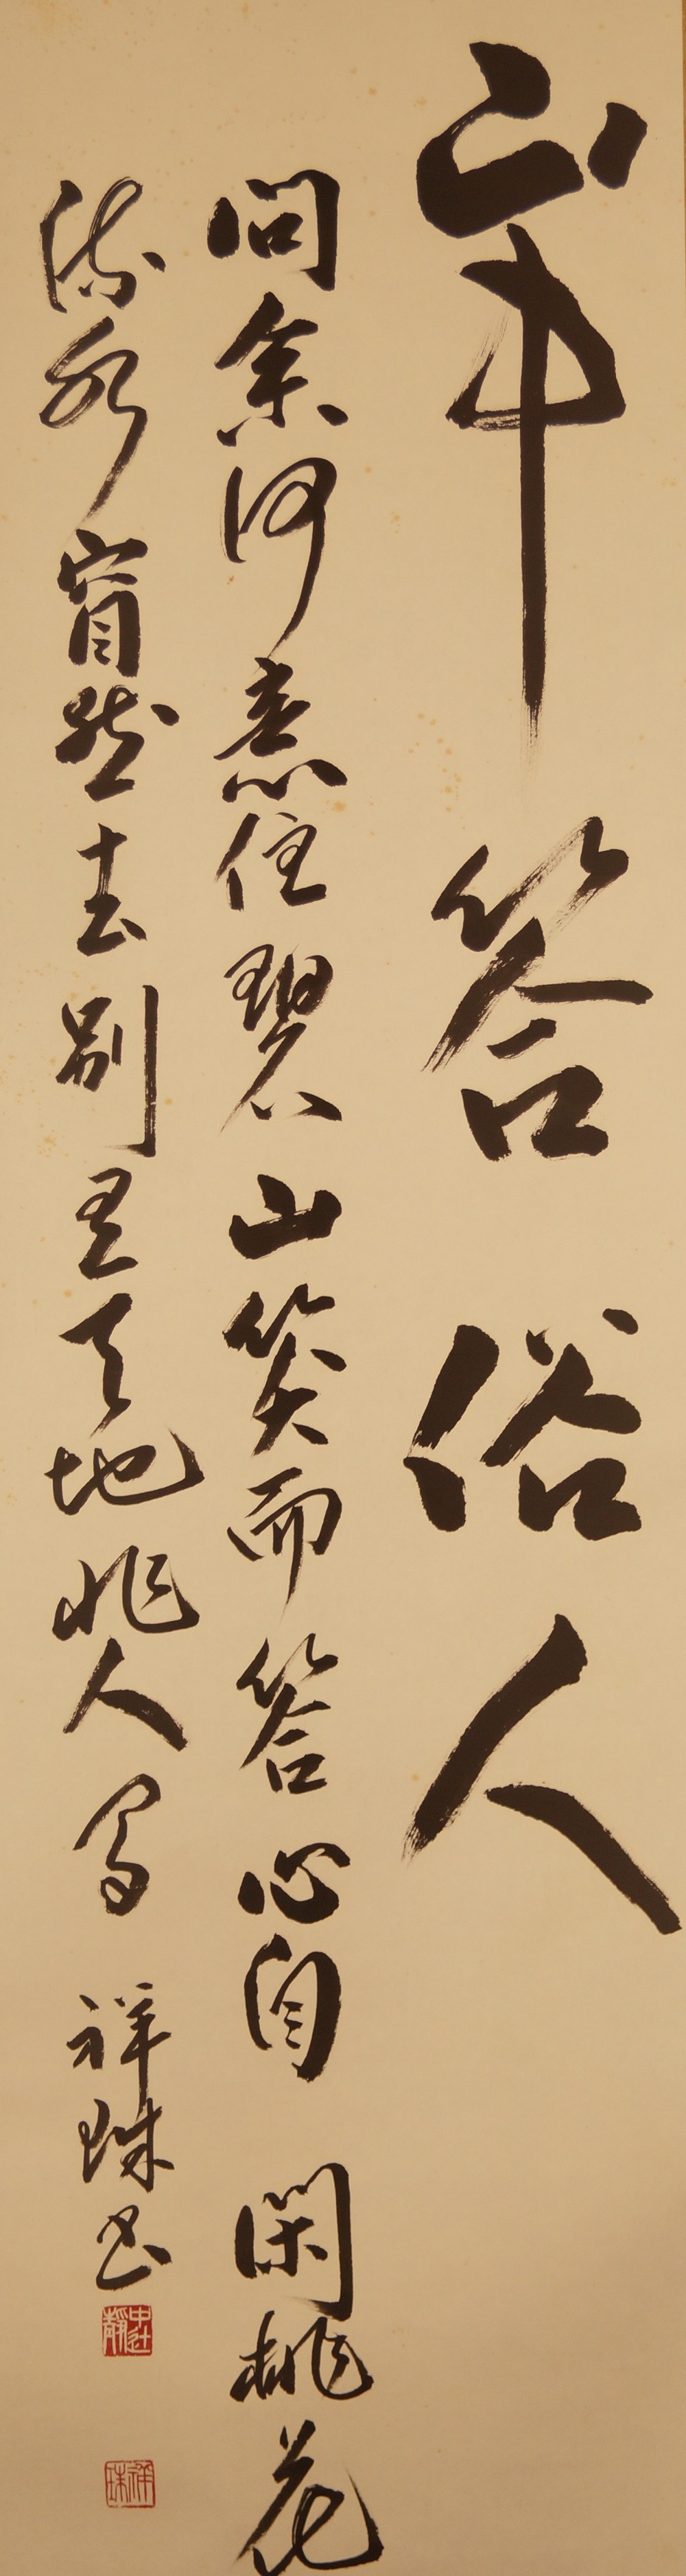 山中答俗人
問余何意住碧山笑而答心自閑桃花
流水窅然去別有天地非人間 祥珠書
中辻靜
祥珠